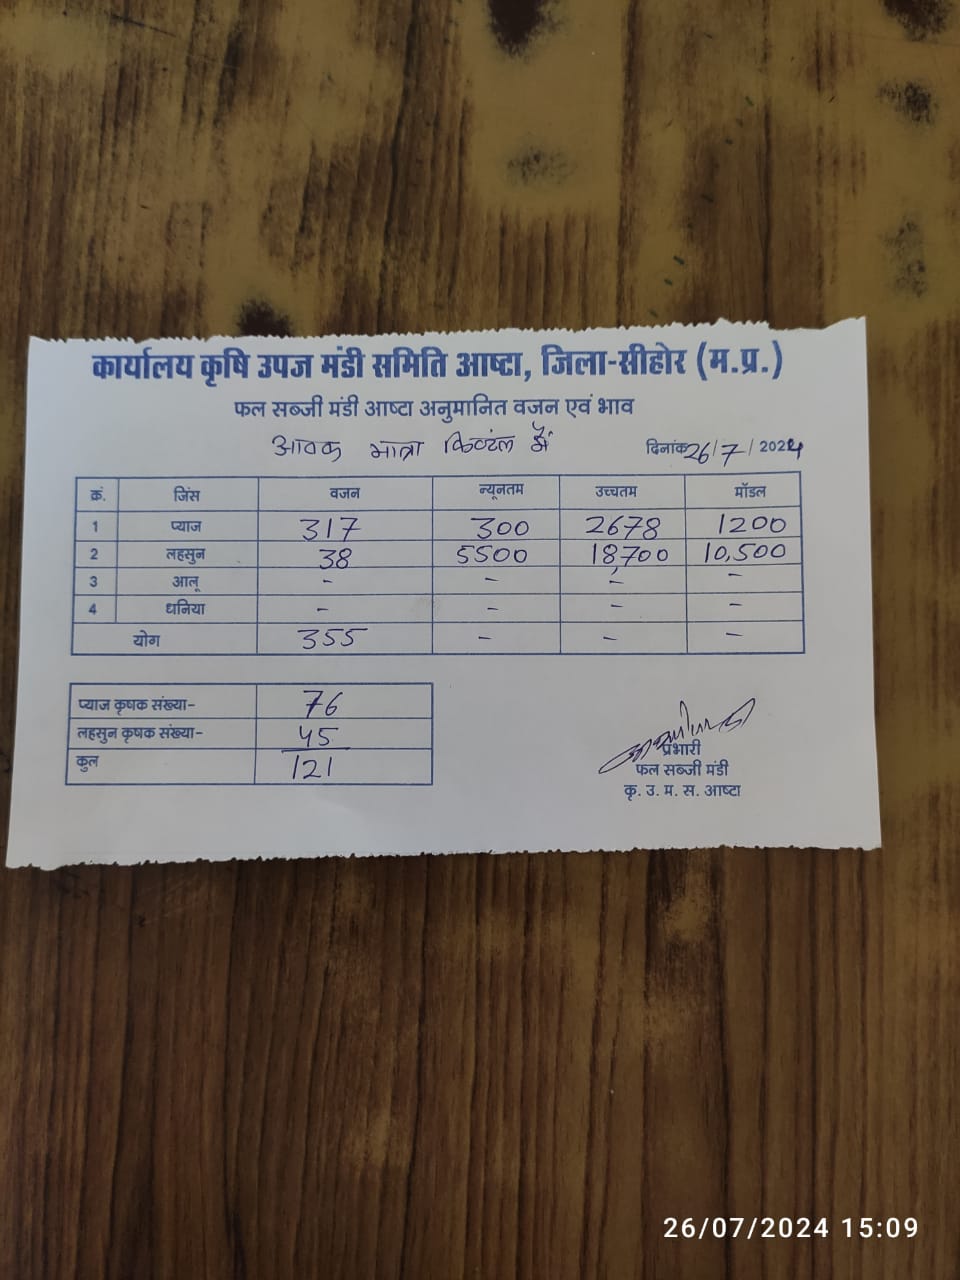 कार्यालय कृषि उपज मंडी समिति आष्टा, जिला-सीहोर (म.प्र.)
फल सब्जी मंडी आष्टा अनुमानित वजन एवं भाव
आवक मात्रा क्विंटल में दिनांक 26/7/2024
क्रं. जिंस वजन न्यूनतम उच्चतम मॉडल
1 प्याज 317 300 2678 1200
2 लहसुन 38 5500 18,700 10,500
3 आलू - - - -
4 धनिया - - - -
योग 355 - - -
प्याज कृषक संख्या- 76
लहसुन कृषक संख्या- 45
कुल 121
प्रभारी
फल सब्जी मंडी
कृ. उ. म. स. आष्टा
26/07/2024 15:09